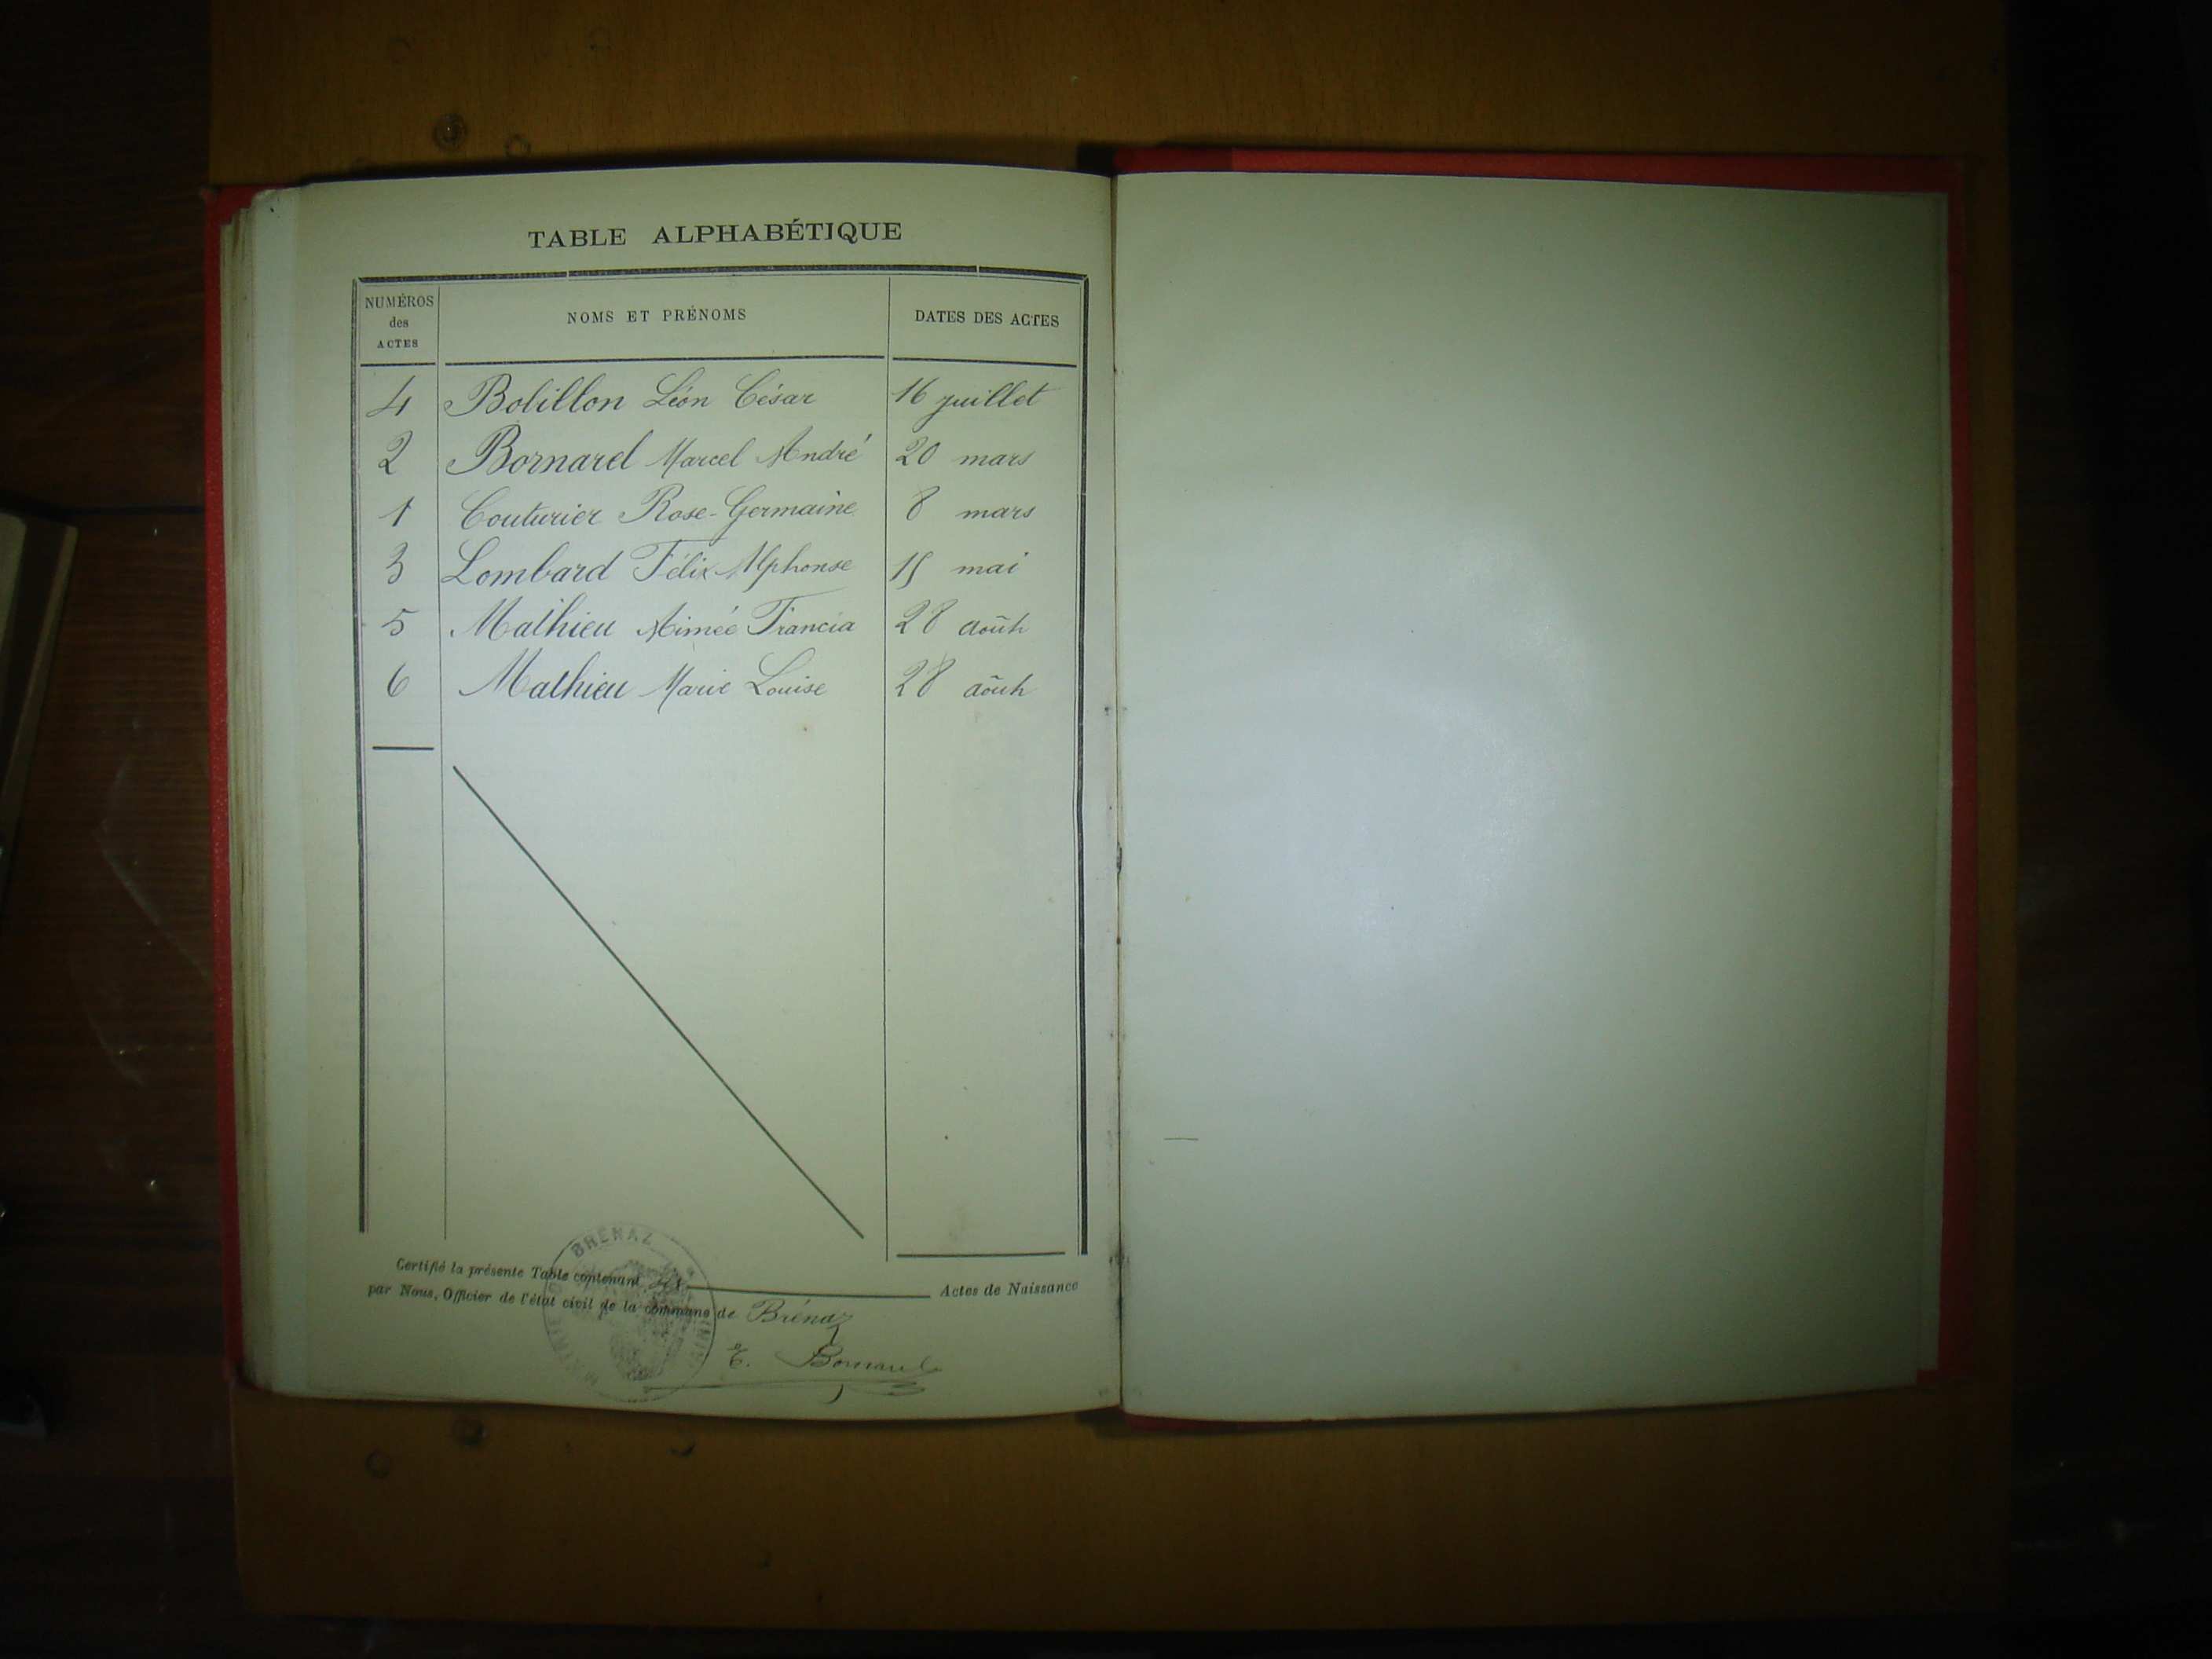 TABLE ALPHABÉTIQUE
NUMÉROS des ACTES NOMS ET PRÉNOMS DATES DES ACTES
4 Bolillon Léon César 16 juillet
2 Bornarel Marcel André 20 mars
1 Couturier Rose-Germaine 8 mars
3 Lombard Félix-Alphonse 15 mai
5 Mathieu Aimée Francia 28 août
6 Mathieu Marie Louise 28 août
BRÉNAZ
Certifié la présente Table contenant six Actes de Naissance
par Nous, Officier de l'état civil de la commune de Brénaz
E. Bornarel